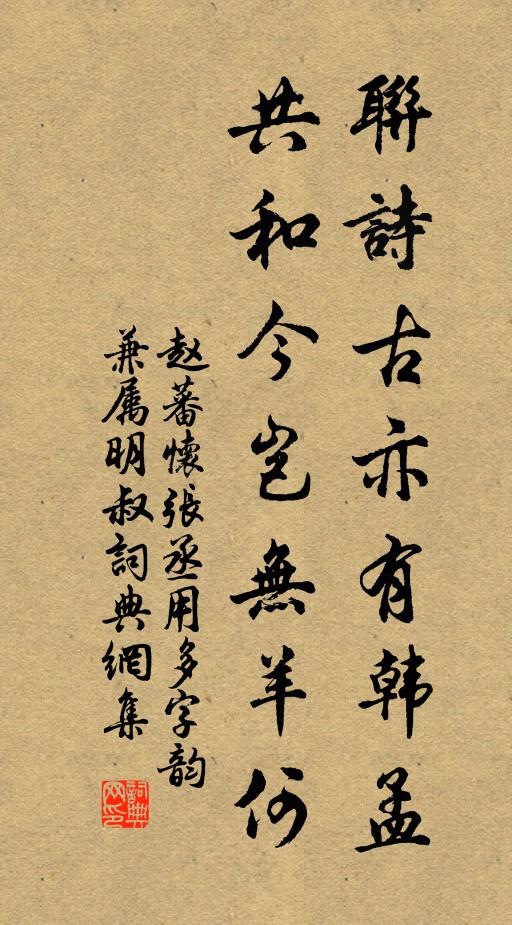 聯詩古亦有韩孟
共和今岂無羊何
赵蕃懷張丞用多字韵
兼属明叔詞典網集
詞典
网印